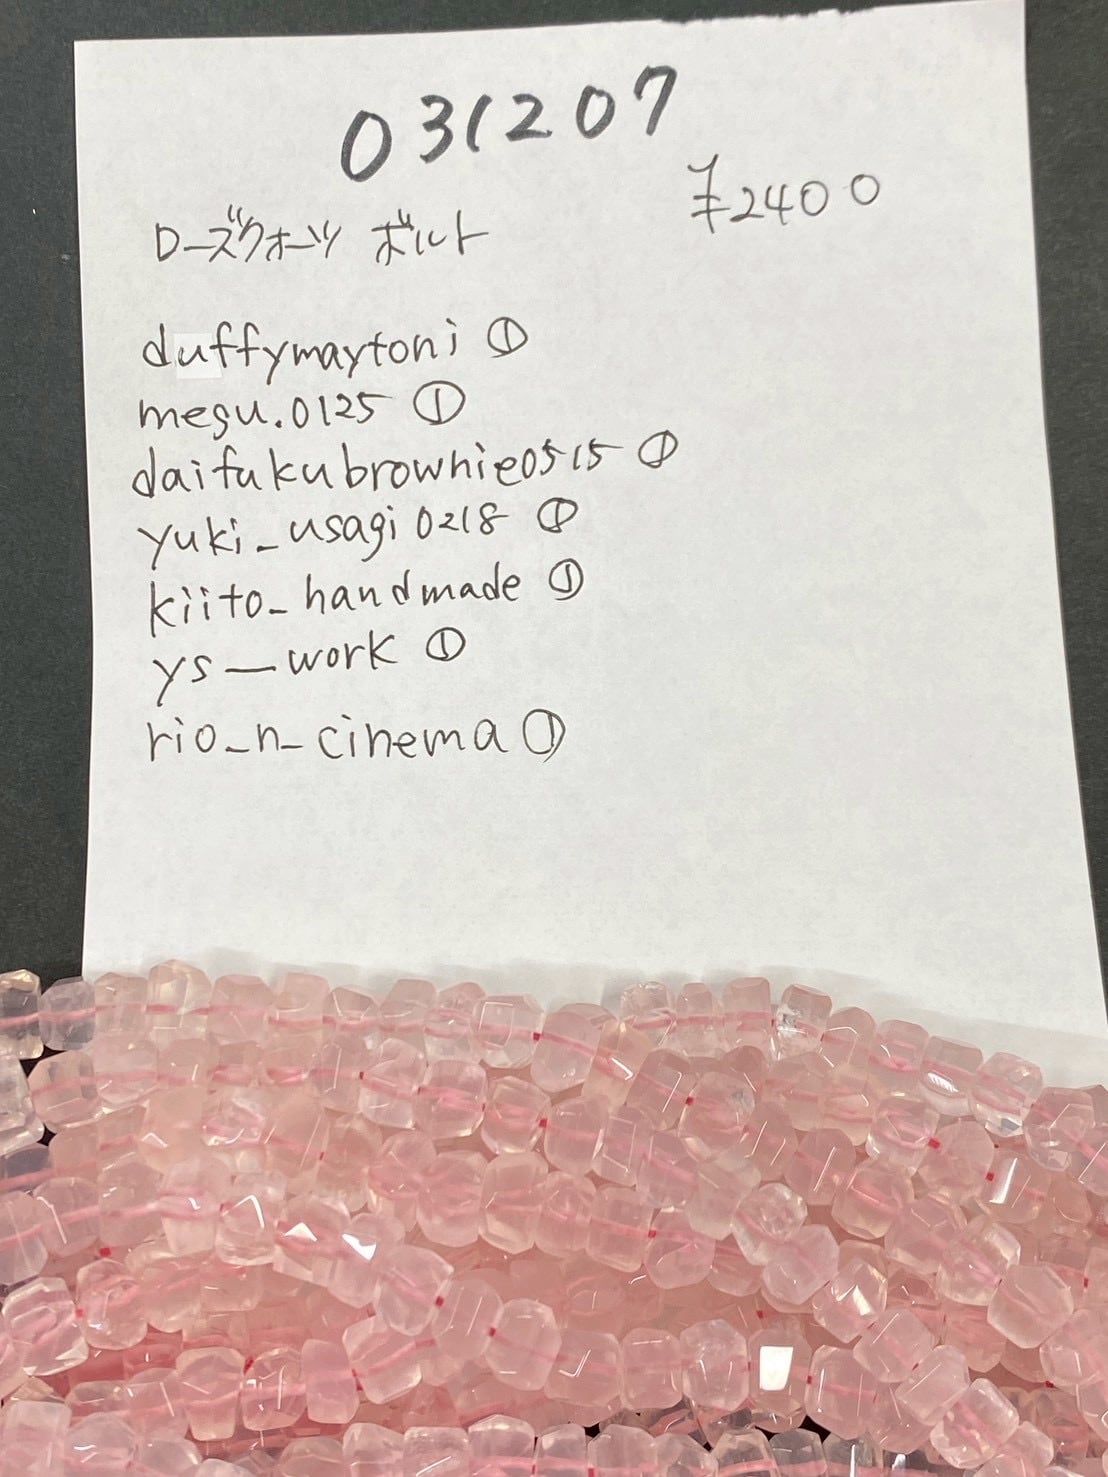 031207
¥2400
ローズクォーツ ボルト
duffymaytoni ①
megu.0125 ①
daifukubrownie0515 ①
yuki_usagi0218 ①
kiito_handmade ①
ys__work ①
rio_n_cinema ①